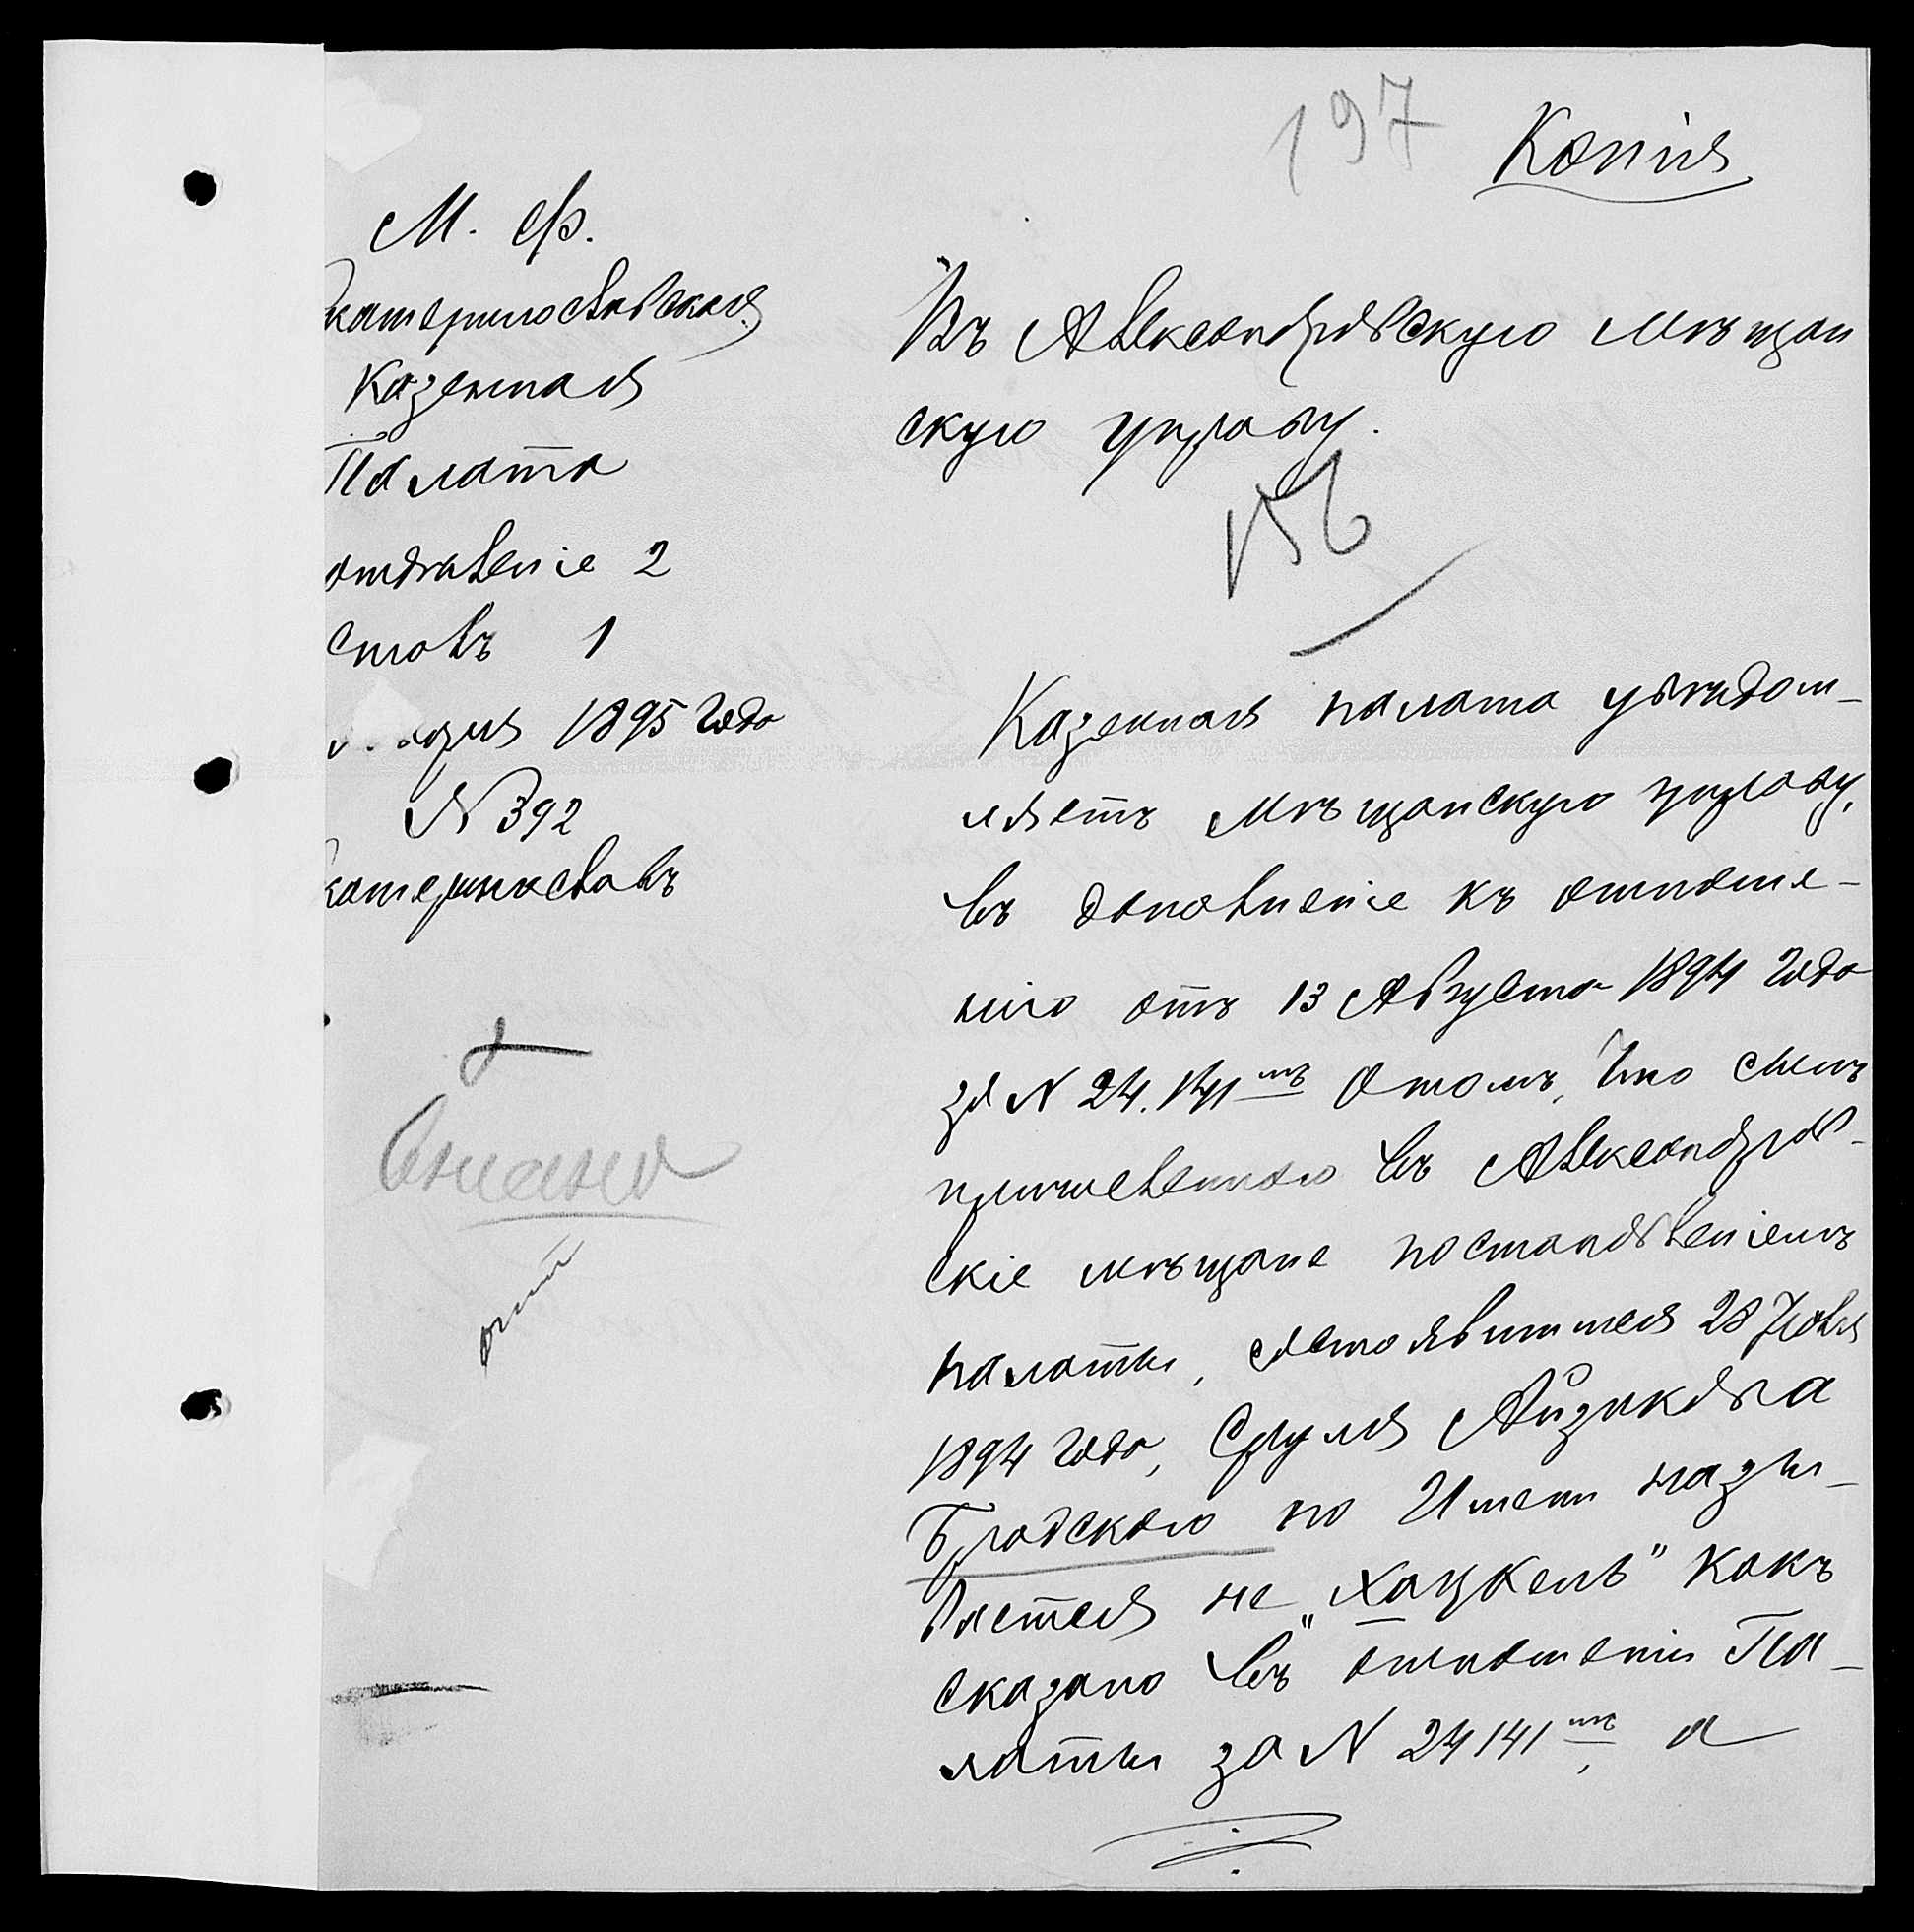 197
Копія
М. Ф.
катеринославская
Казенная
Палата
отдѣленіе 2
Столъ 1
1895 года
N 392
катеринославъ
Въ Александровскую Мѣщан
скую управу.
156
Казенная палата увѣдом-
ляетъ Мѣщанскую управу,
въ дополненіе къ отноше-
нію отъ 13 Августа 1894 года
за N 24.141мъ о томъ, что сынъ
причисленнаго въ Александров-
скіе мѣщане постановленіемъ
палаты, состоявшимся 28 Іюля
1894 года, Сруля Айзикова
Бродского по Имени назы-
вается не „Хацкель" какъ
сказано въ отношеніи Па-
латы за N 24141мъ, а